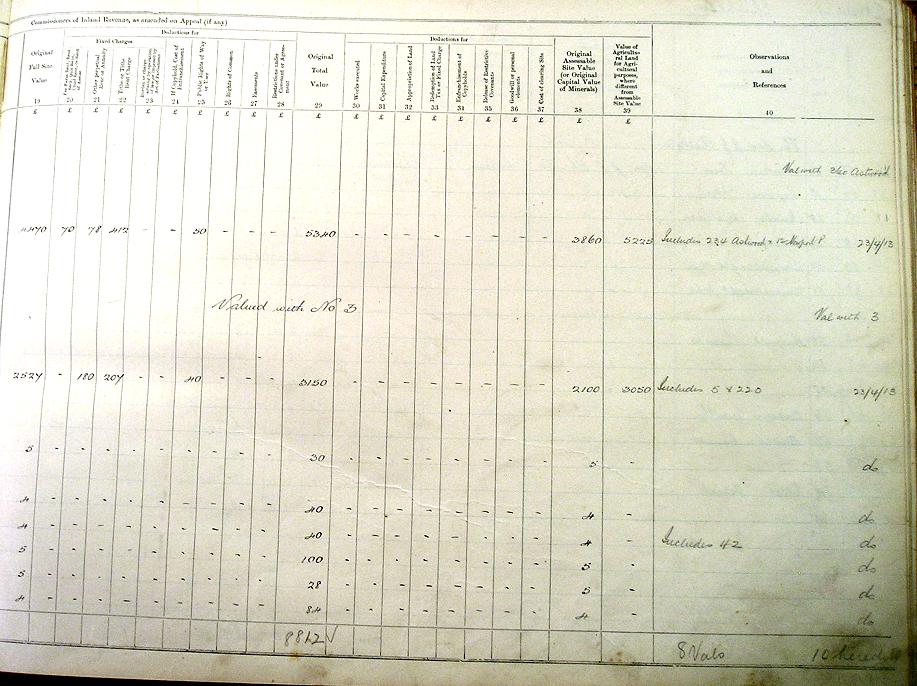 Commissioners of Inland Revenue, as amended on Appeal (if any)
Deductions for
Deductions for
Fixed Charges
Original Full Site Value
Other perpetual Rent or Annuity
Tithe or Tithe Rent Charge
If Copyhold, Cost of Enfranchisement
Public Rights of Way or User
Rights of Common
Easements
Restrictions under Covenant or Agreement
Original Total Value
Works executed
Capital Expenditure
Appropriation of Land
Redemption of Land Tax or Fixed Charge
Enfranchisement of Copyholds
Release of Restrictive Covenants
Goodwill or personal element
Cost of clearing Site
Original Assessable Site Value (or Original Capital Value of Minerals)
Value of Agricultural Land for Agricultural purposes, where different from Assessable Site Value
Observations and References
19 20 21 22 23 24 25 26 27 28 29 30 31 32 33 34 35 36 37 38 39 40
£ £ £ £ £ £ £ £ £ £ £ £ £ £ £ £ £ £ £ £ £
Val with Astwood
4470 70 78 412 - - 50 - - - 5340 - - - - - - - - 3860 5225 Includes 234 Astwood & 12 Newport P 23/4/13
Valued with No 3 Val with 3
2527 - 180 207 - - 40 - - - 3150 - - - - - - - - 2100 3050 Includes 5 & 220 23/4/13
5 - - - - - - - - - 30 - - - - - - - - 5 - do
4 - - - - - - - - - 40 - - - - - - - - 4 - do
4 - - - - - - - - - 40 - - - - - - - - 4 - Includes 42 do
5 - - - - - - - - - 100 - - - - - - - - 5 - do
5 - - - - - - - - - 28 - - - - - - - - 5 - do
4 - - - - - - - - - 84 - - - - - - - - 4 - do
8812 8 Vals 10